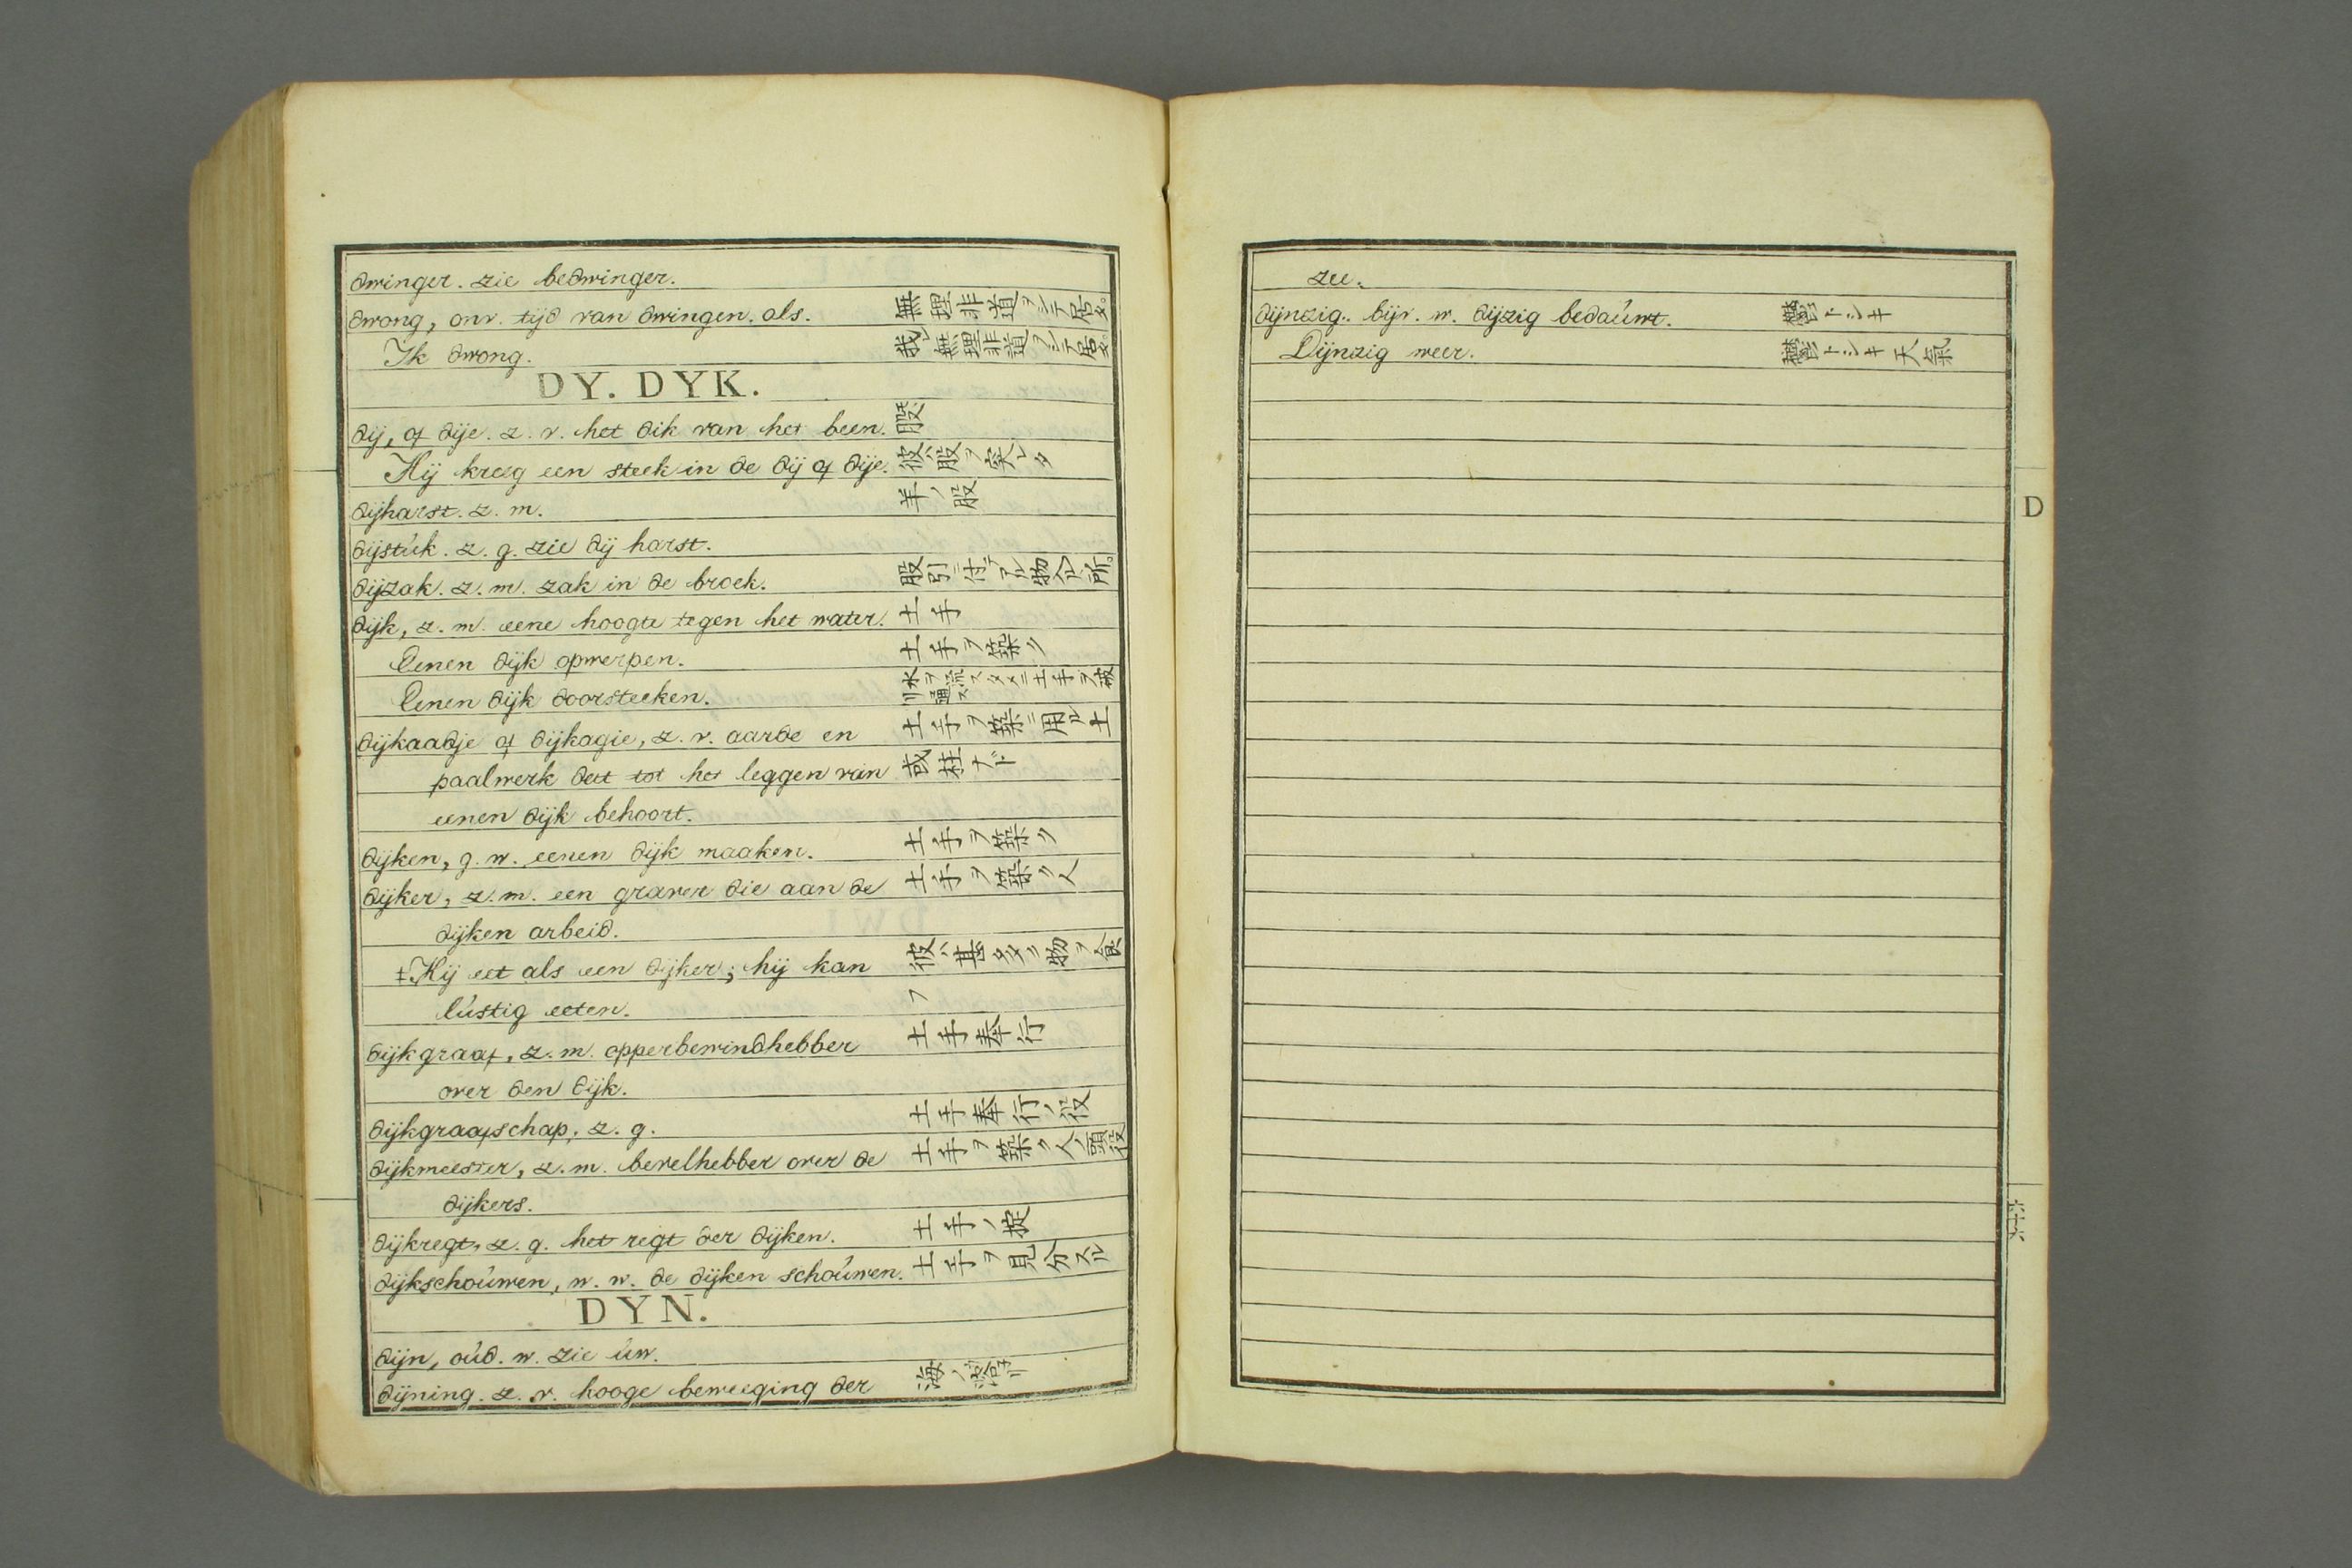 dwinger. zie bedwinger.
dwong, onv. tijd van dwingen. als. 無理非道ヲシテ居タ。
Ik dwong. 我無理非道ヲシテ居タ
DY. DYK.
dij, of dije. z. v. het dik van het been. 股
Hij kreeg een steek in de dij of dije. 彼ハ股ヲ突レタ
dijharst. z. m. 羊ノ股
dijstúk. z. g. zie dij harst.
dijzak. z. m. zak in de broek. 股引ニ付テアル物入レ所。
dijk, z. m. eene hoogte tegen het water. 土手
Eenen dijk opwerpen. 土手ヲ築ク
Eenen dijk doorsteeken. 川水ヲ流スタメニ土手ヲ
dijkaadje of dijkagie, z. v. aarde en 土手ヲ築ニ用ル土
paalwerk dat tot het leggen van 或柱ナド
eenen dijk behoort.
dijken, g. w. eenen dijk maaken. 土手ヲ築ク
dijker, z. m. een graver die aan de 土手ヲ築ク人
dijken arbeid.
‡Hij eet als een dijker; hij kan 彼ハ甚多ク物ヲ食
lústig eeten. フ
dijkgraaf, z. m. opperbewindhebber 土手奉行
over den dijk.
dijkgraafschap, z. g. 土手奉行ノ役
dijkmeester, z. m. bevelhebber over de 土手ヲ築ク人ノ頭役
dijkers.
dijkregt, z. g. het regt der dijken. 土手ノ掟
dijkschoúwen, w. w. de dijken schoúwen. 土手ヲ見分スル
DYN.
dijn, oúd. w. zie úw.
dijning. z. v. hooge beweeging der 海ノ
zee.
dijnzig. bijv. w. dijzig bedaúwt. 欝トシキ
Dijnzig weer. 欝トシキ天氣
D